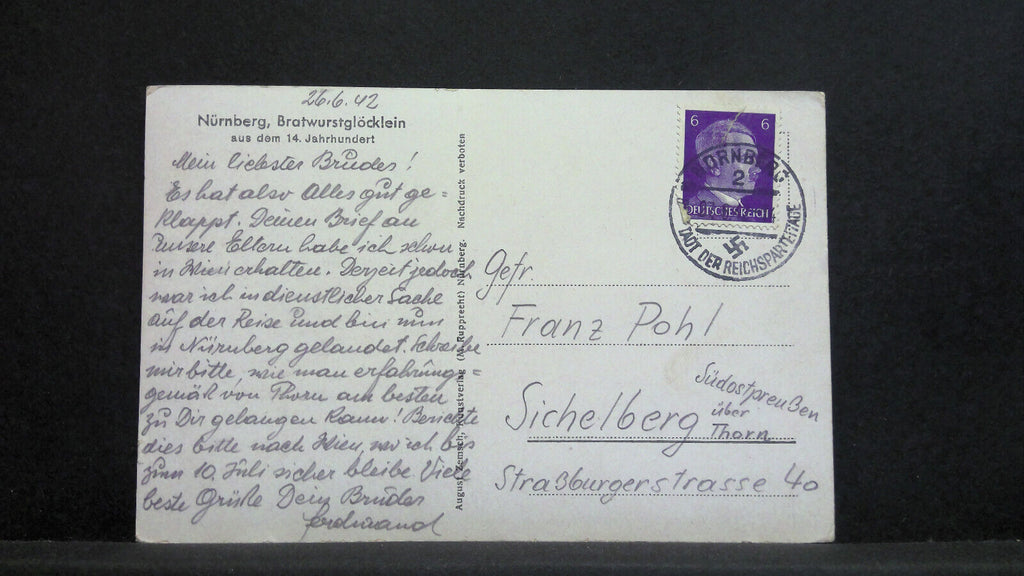 26.6.42
Nürnberg, Bratwurstglöcklein
aus dem 14. Jahrhundert
Mein liebster Bruder!
Es hat also Alles gut ge=
klappt. Deinen Brief an
unsere Eltern habe ich schon
in Wien erhalten. Derzeit jedoch
war ich in dienstlicher Sache
auf der Reise und bin nun
in Nürnberg gelandet. Schreibe
mir bitte, wie man erfahrungs=
gemäß von Thorn am besten
zu Dir gelangen kann! Berichte
dies bitte nach Wien, wo ich bis
zum 10. Juli sicher bleibe. Viele
beste Grüße Dein Bruder
Ferdinand
August Zemsch, Kunstverlag (M. Rupprecht) Nürnberg. Nachdruck verboten
6 6
DEUTSCHES REICH
NÜRNBERG
2
STADT DER REICHSPARTEITAGE
Gefr.
Franz Pohl
Sichelberg
Südostpreußen
über
Thorn
Straßburgerstrasse 40